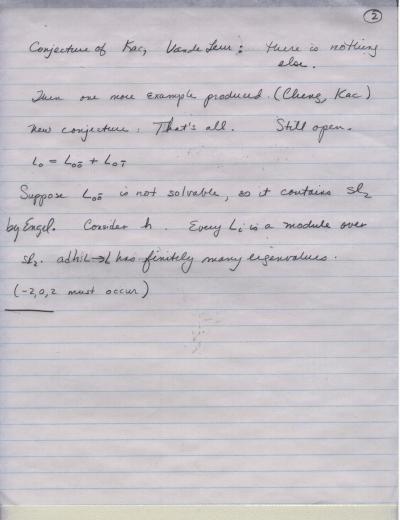 2
Conjecture of Kac, Van de Leur: there is nothing
else.
Then one more example produced. (Cheng, Kac)
New conjecture: That's all. Still open.
L₀ = L₀₀̄ + L₀₁̄
Suppose L₀₀̄ is not solvable, so it contains sl₂
by Engel. Consider h. Every Lᵢ is a module over
sl₂. adh:L→L has finitely many eigenvalues.
(-2,0,2 must occur)